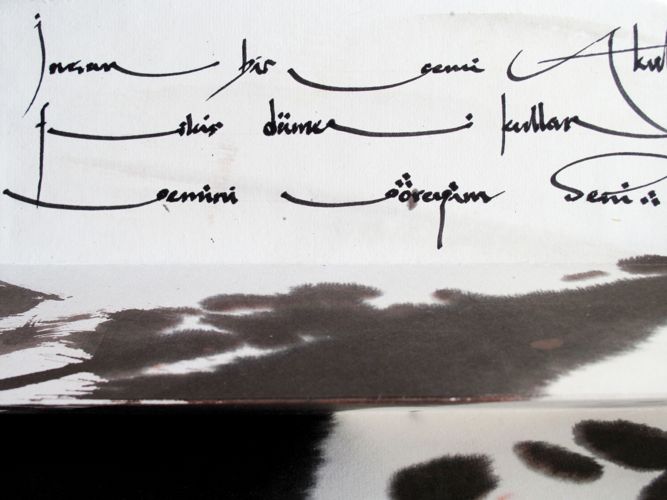 İnsan bir gemi Akıl
Fikir dümen kullan
Gemini göreyim Seni